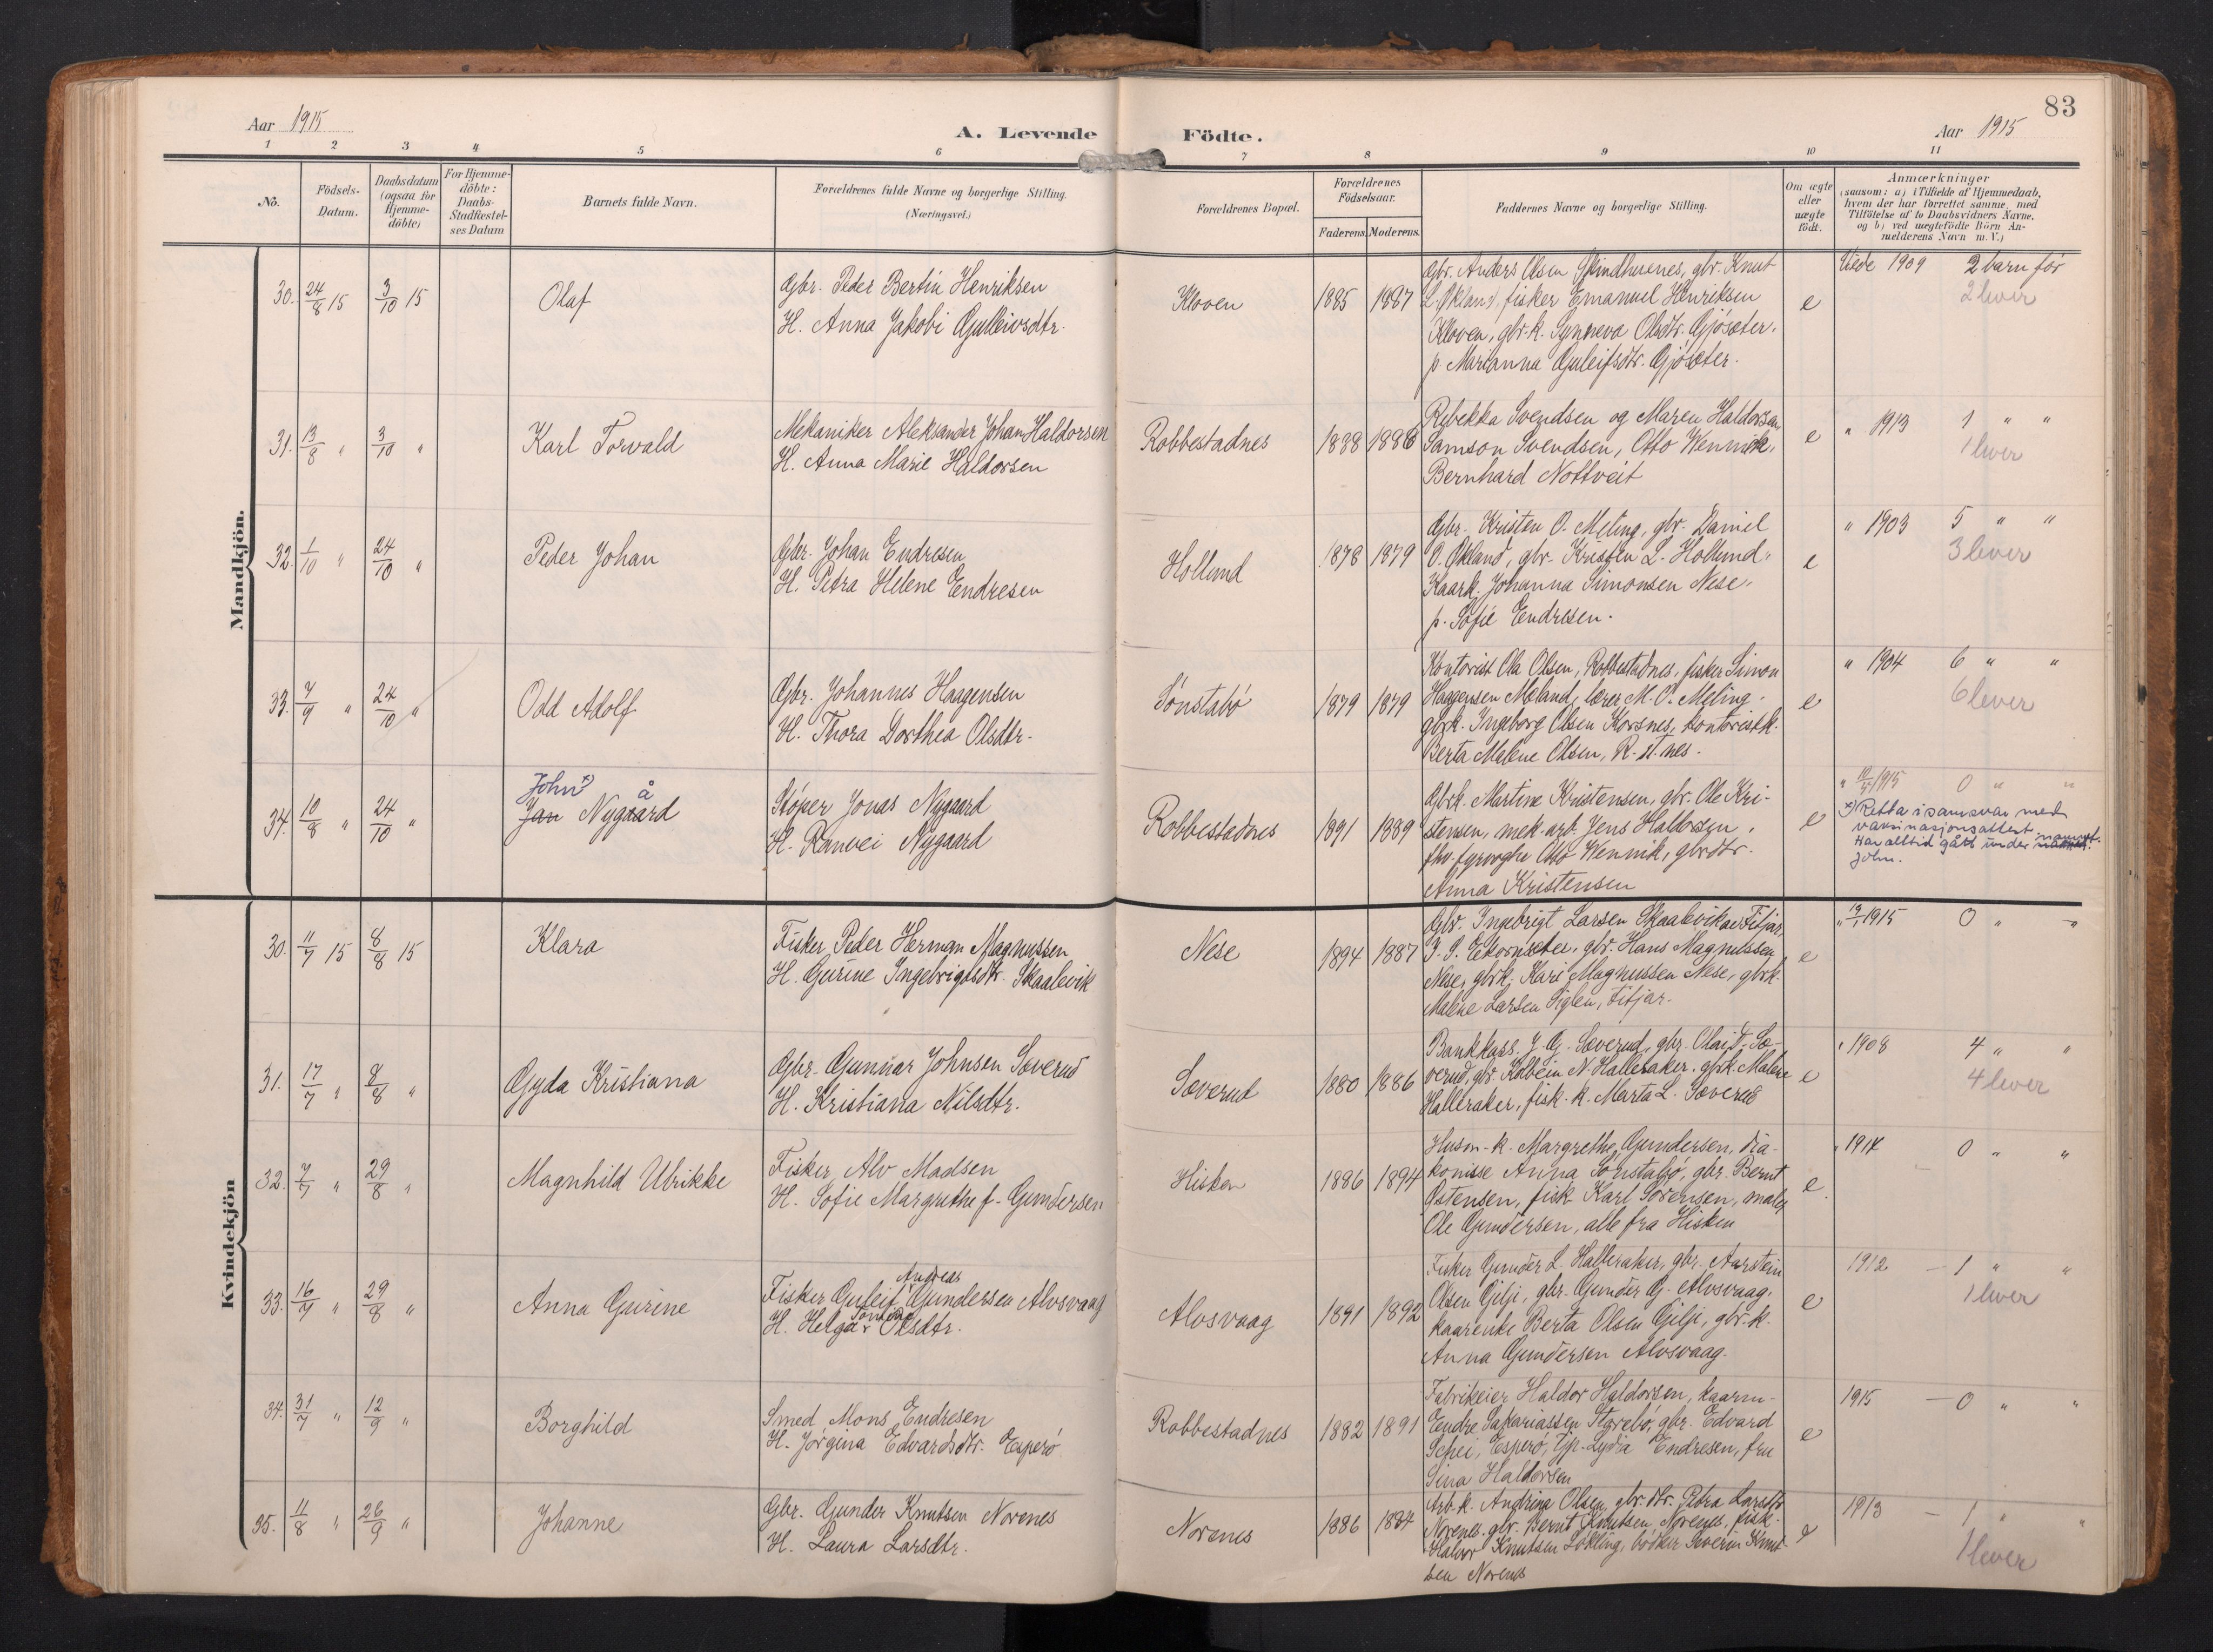 83
Aar 1915
A. Levende Födte.
Aar 1915
1 2 3 4 5 6 7 8 9 10 11
No.
Födsels-
Datum.
Daabsdatum
(ogsaa for
Hjemme-
döbte)
For Hjemme-
döbte:
Daabs-
Stadfæstel-
ses Datum
Barnets fulde Navn.
Forældrenes fulde Navne og borgerlige Stilling.
(Næringsvei.)
Forældrenes Bopæl.
Forældrenes
Födselsaar.
Faderens. Moderens.
Faddernes Navne og borgerlige Stilling.
Om ægte
eller
uægte
födt.
Anmærkninger
(saasom: a) i Tilfælde af Hjemmedaab,
hvem der har forrettet samme, med
Tilföielse af to Daabsvidners Navne,
og b) ved uægtefödte Börn An-
melderens Navn m. V.)
Mandkjön.
30. 24/8 15 3/10 15
Olaf
Gbr. Peder Bertin Henriksen
H. Anna Jakobi Gulleivsdtr.
Kloven
1885 1887
Gbr. Anders Olsen Skindhuenes, gbr. Knut
L. Økland, fisker Emanuel Henriksen
Kloven, gbr.k. Synneva Olsdtr. Gjøsæter.
p. Marianna Guleifsdtr. Gjøsæter.
e
Viede 1909 2 barn før
2 lever
31. 13/8 " 3/10 "
Karl Torvald
Mekaniker Aleksander Johan Haldorsen
H. Anna Marie Haldorsen
Robbestadnes
1888 1886
Rebekka Svendsen og Maren Haldorsen
Samson Svendsen, Otto Wennik,
Bernhard Nottveit
e
" 1913 1 " "
1 lever
32. 1/10 " 24/10 "
Peder Johan
Gbr. Johan Endresen
H. Petra Helene Endresen
Hollund
1878 1879
Gbr. Kristen O. Meling, gbr. Daniel
O. Økland, gbr. Kristen L. Hollund.
Kaark. Johanna Simonsen Nese.
p. Sofie Endresen.
e
" 1903 5 " "
3 lever
33. 7/9 " 24/10 "
Odd Adolf
Gbr. Johannes Haagensen
H. Thora Dorthea Olsdtr.
Tønstabø
1879 1879
Kontorist Ola Olsen, Robbestadnes, fisker Simon
Haggensen Meland, lærer M. O. Meling.
gbrk. Ingeborg Olsen Korsnes, kontoristk.
Berta Malene Olsen, R. st. nes.
e
" 1904 6 " "
6 lever
34. 10/8 " 24/10 "
John x) å
Jan Nygaard
Støper Jonas Nygaard
H. Ranvei Nygaard
Robbestadnes
1891 1889
Gbrk. Martine Kristensen, gbr. Ole Kri-
stensen, mek. arb. Jens Haldorsen.
Otto Wennik, gbrdtr.
Anna Kristensen
e
1915 0 " "
x) Retta i samsvar med
vaksinasjonsattest.
Har alltid gått under namnet
John.
Kvindekjön
30. 11/7 15 8/8 15
Klara
Fisker Peder Herman Magnussen
H. Gurine Ingebrigtsdtr. Skaalevik
Nese
1894 1887
Gbr. Ingebrigt Larsen Skaalevik av Fitjar.
gbr. Hans Magnussen
Nese, gbrk. Kari Magnussen Nese, gbrk.
Malene Larsen Siglen, Fitjar.
e
1915 0 " "
31. 17/7 " 8/8 "
Gyda Kristiana
Gbr. Gunnar Johnsen Sæverud
H. Kristiana Nilsdtr.
Sæverud
1880 1886
Bankkass. J. G. Sæverud, gbr. Olai T. Sæ-
verud, gbr. Kolbein N. Halleraker, gbrk. Malene
Halleraker, fisk. k. Marta L. Sæverud
e
" 1908 4 " "
4 lever
32. 7/7 " 29/8 "
Magnhild Ulrikke
Fisker Alv Madsen
H. Sofie Margrethe f. Gundersen
Hisken
1886 1894
Husm-k. Margrethe Gundersen, dia-
konisse Anna Tønstabø, gbr. Bernt
Østensen, fisk. Karl Sørensen, maler
Ole Gundersen, alle fra Hisken
e
" 1914 0 " "
33. 16/7 " 29/8 "
Anna Gurine
Andreas
Fisker Guleif Gundersen Alvsvaag
H. Helga Olsdtr.
Alvsvaag
1891 1892
Fisker Gunder L. Halleraker, gbr. Aarstein
Olsen Gilje, gbr. Gunder G. Alvsvaag.
kaarenke Berta Olsen Gilje, gbr.k.
Anna Gundersen Alvsvaag.
e
1912 — 1 " "
1 lever
34. 31/7 " 12/9 "
Borghild
Smed Mons Endresen
H. Jørgina Edvardsdtr. Esperø
Robbestadnes
1882 1891
Fabrikeier Haldor Haldorsen, kaarm-
Endre Sakariassen Styrebø, gbr. Edvard
Schei, Esperø, Tjp. Lydia Endresen, fru
Sina Haldorsen
e
1915 — 0 " "
35. 11/8 " 26/9 "
Johanne
Gbr. Gunder Knutsen Norenes
H. Laura Larsdtr.
Norenes
1886 1884
Arb. k. Andrina Olsen, gbr. dtr. Petra Larsdtr
Norenes, gbr. Bernt Knutsen Norenes, fisk.
Halvor Knutsen Løkling, bødker Severin Knut
sen Norenes
e
1913 — 1 " "
1 lever